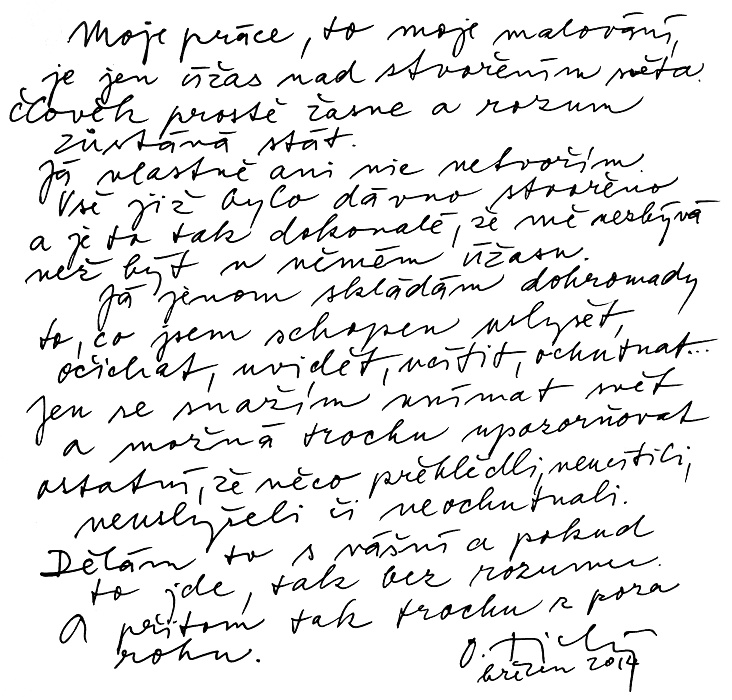 Moje práce, to moje malování,
je jen úžas nad stvořením světa.
Člověk prostě žasne a rozum
zůstává stát.
Já vlastně ani nic netvořím.
Vše již bylo dávno stvořeno
a je to tak dokonalé, že mě nezbývá
než být v němém úžasu.
Já jenom skládám dohromady
to, co jsem schopen uslyšet,
očichat, uvidět, ucítit, ochutnat...
Jen se snažím vnímat svět
a možná trochu upozorňovat
ostatní, že něco přehlédli, neucítili,
neuslyšeli či neochutnali.
Dělám to s vášní a pokud
to jde, tak bez rozumu.
A přitom tak trochu z pora
rohu.
O.
březen 2014